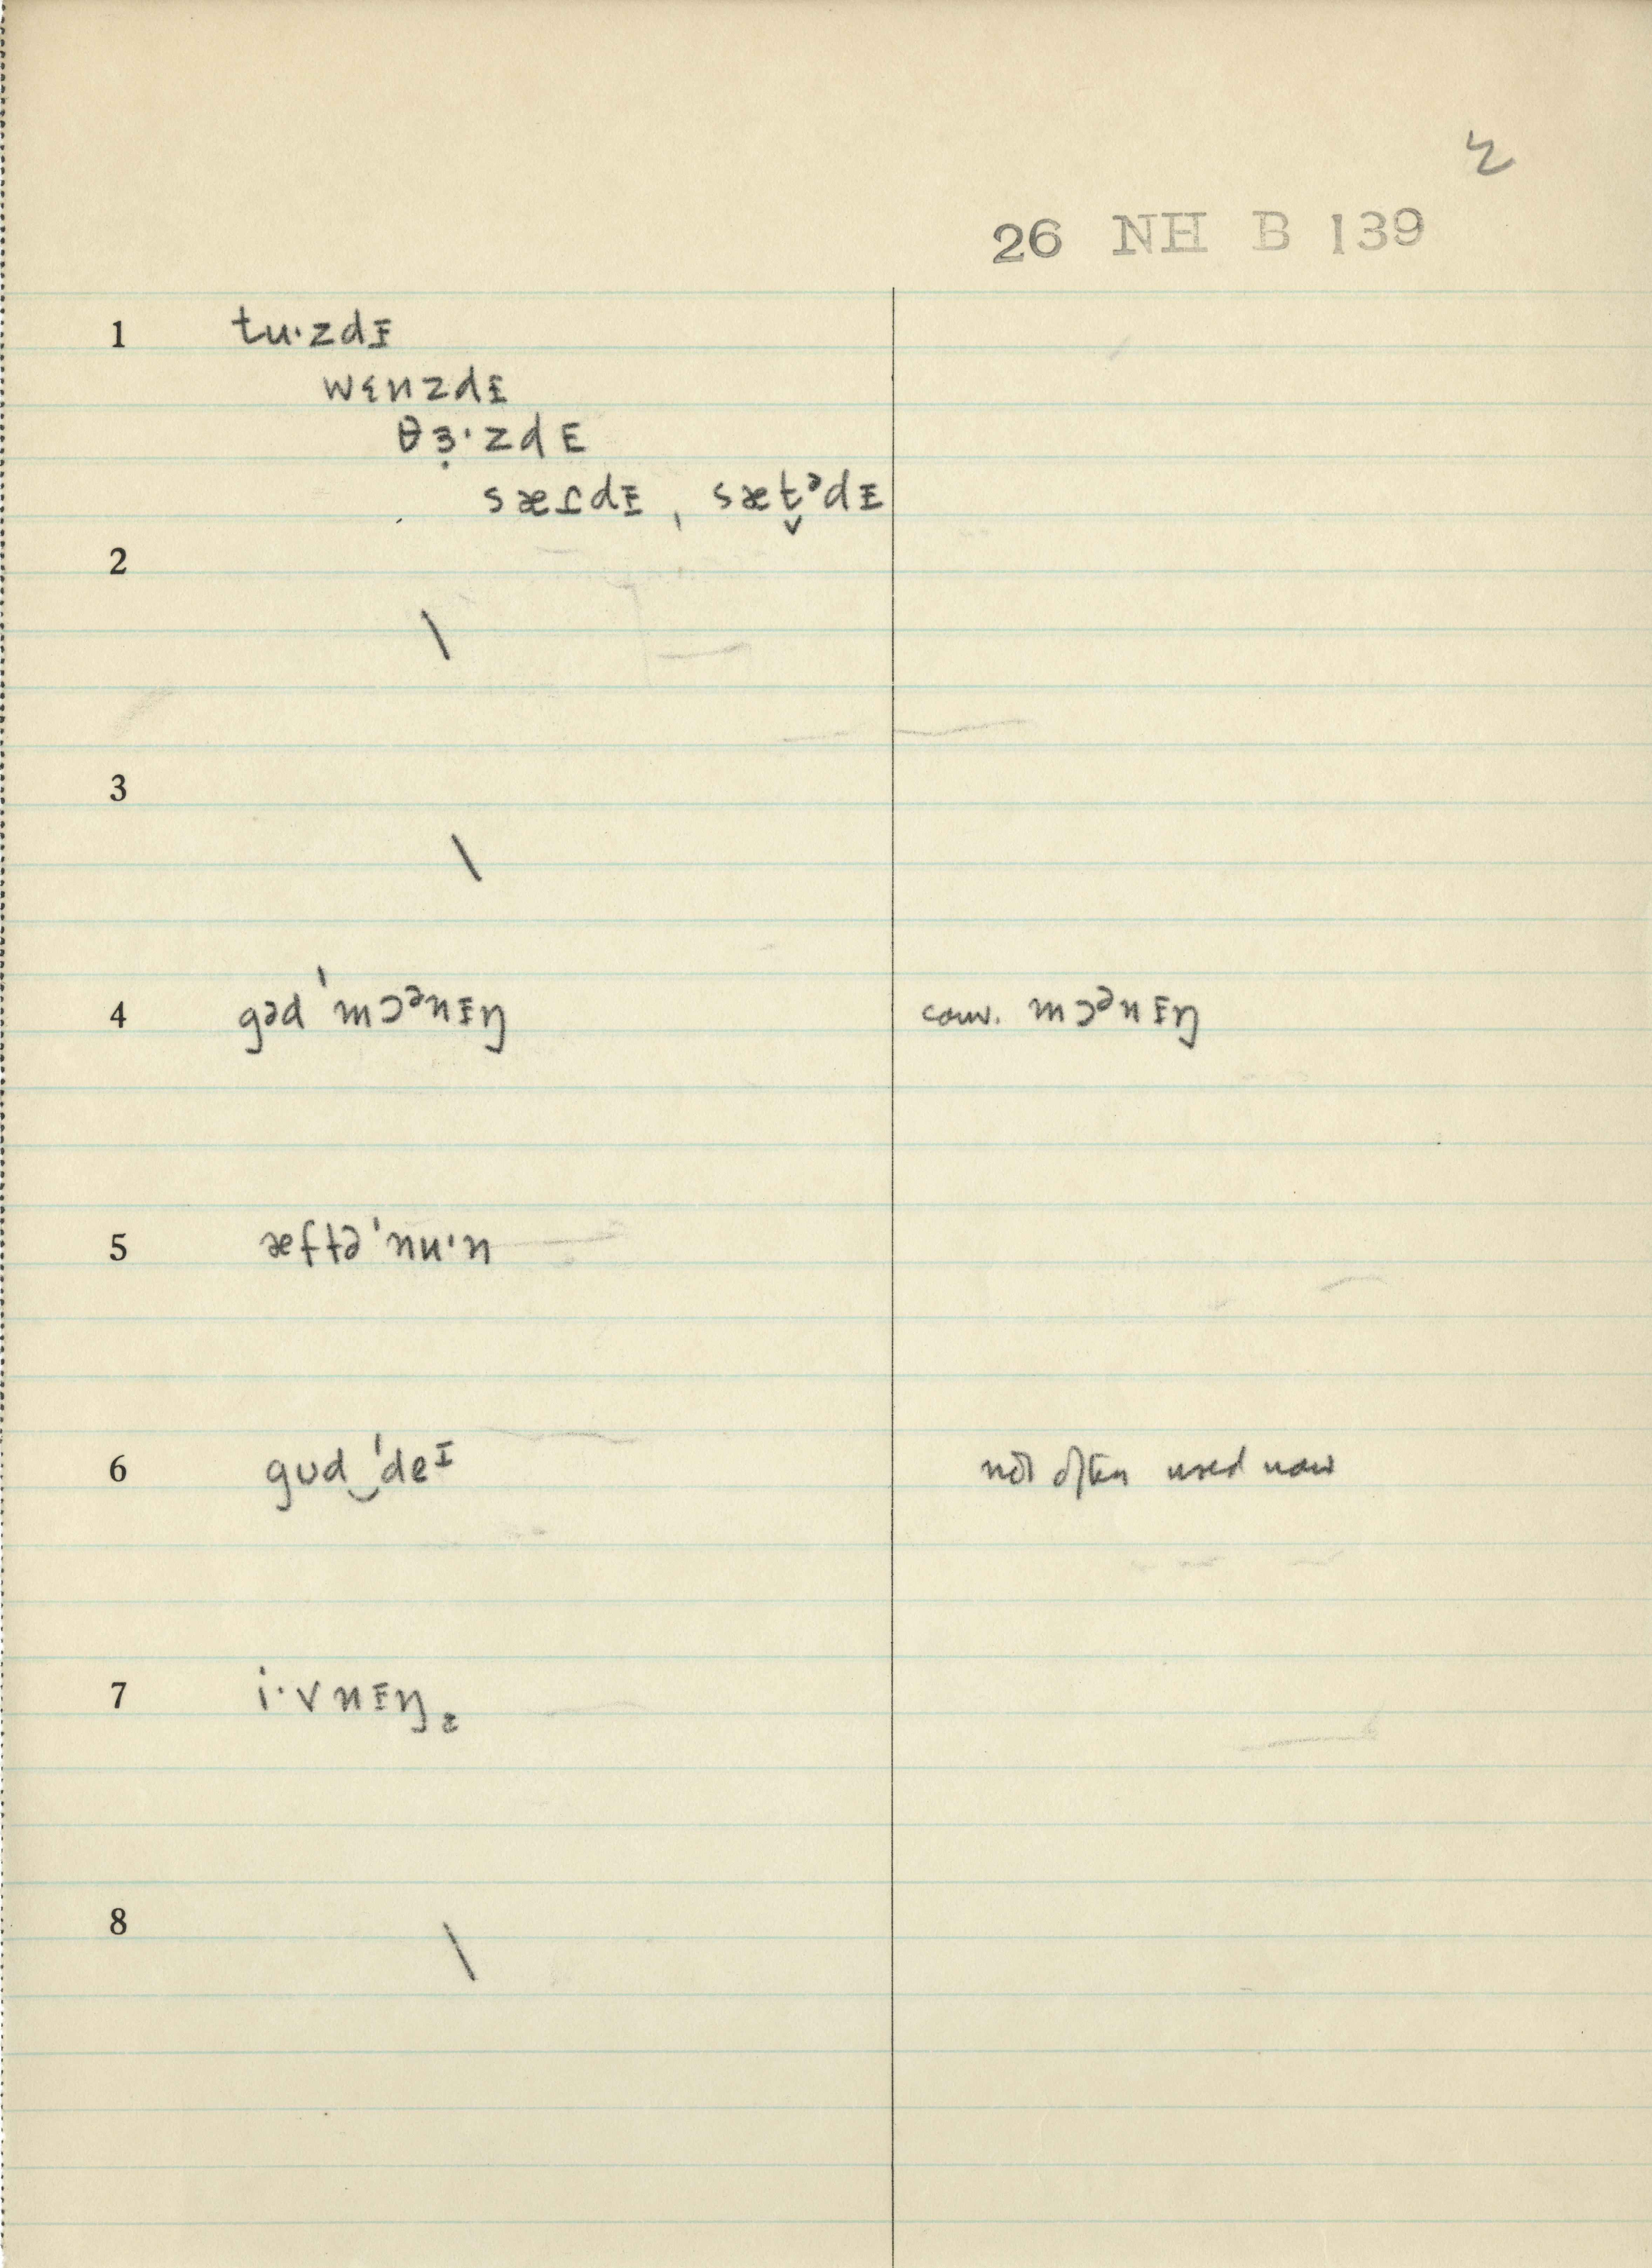 2
26 NH B 139
1 tu·zdᵻ
wɛnzdᵻ
θɜ̣·zdE
sæɾdᵻ, sæt̬ᵊdᵻ
2 \
3 \
4 gəd ˈmɔᵊnᵻŋ conv. mɔᵊnᵻŋ
5 æftəˈnu·n
6 gʊd‿ˈdeᴵ not often used now
7 i·vnᵻŋ
8 \